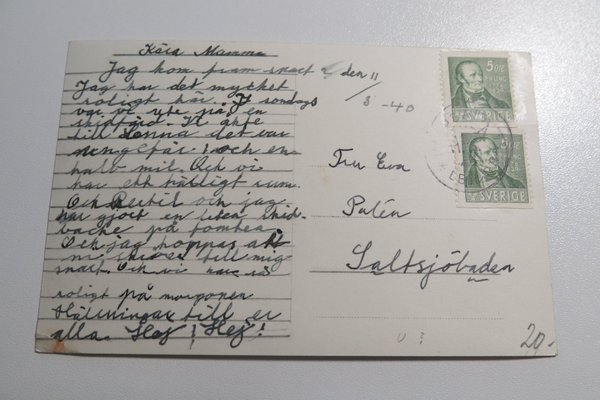 Kära Mamma
Jag kom fram snart den 11
Jag har det mycket / 3 -40
roligt här. I söndags
var vi ute på en
skidfärd. Vi åkte
till Sonna det var
ungefär 1 och en
halv mil. Och vi
har ett rum.
Och Bertil och jag
har gjort en liten skid-
backe på tomten.
Och jag hoppas att
ni skriver till mig
snart. Och vi har så
roligt på morgonen
Hälsningar till er
alla. Hej! Hej!
Fru Eva
Palén
Saltsjöbaden
5 ÖRE
P.H. LING
SVERIGE
SVERIGE
20.-